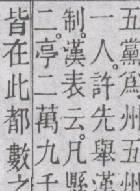 五黨爲州五州
一人許先舉漢
制漢表云凡縣
二亭二萬九千
皆在此都數之